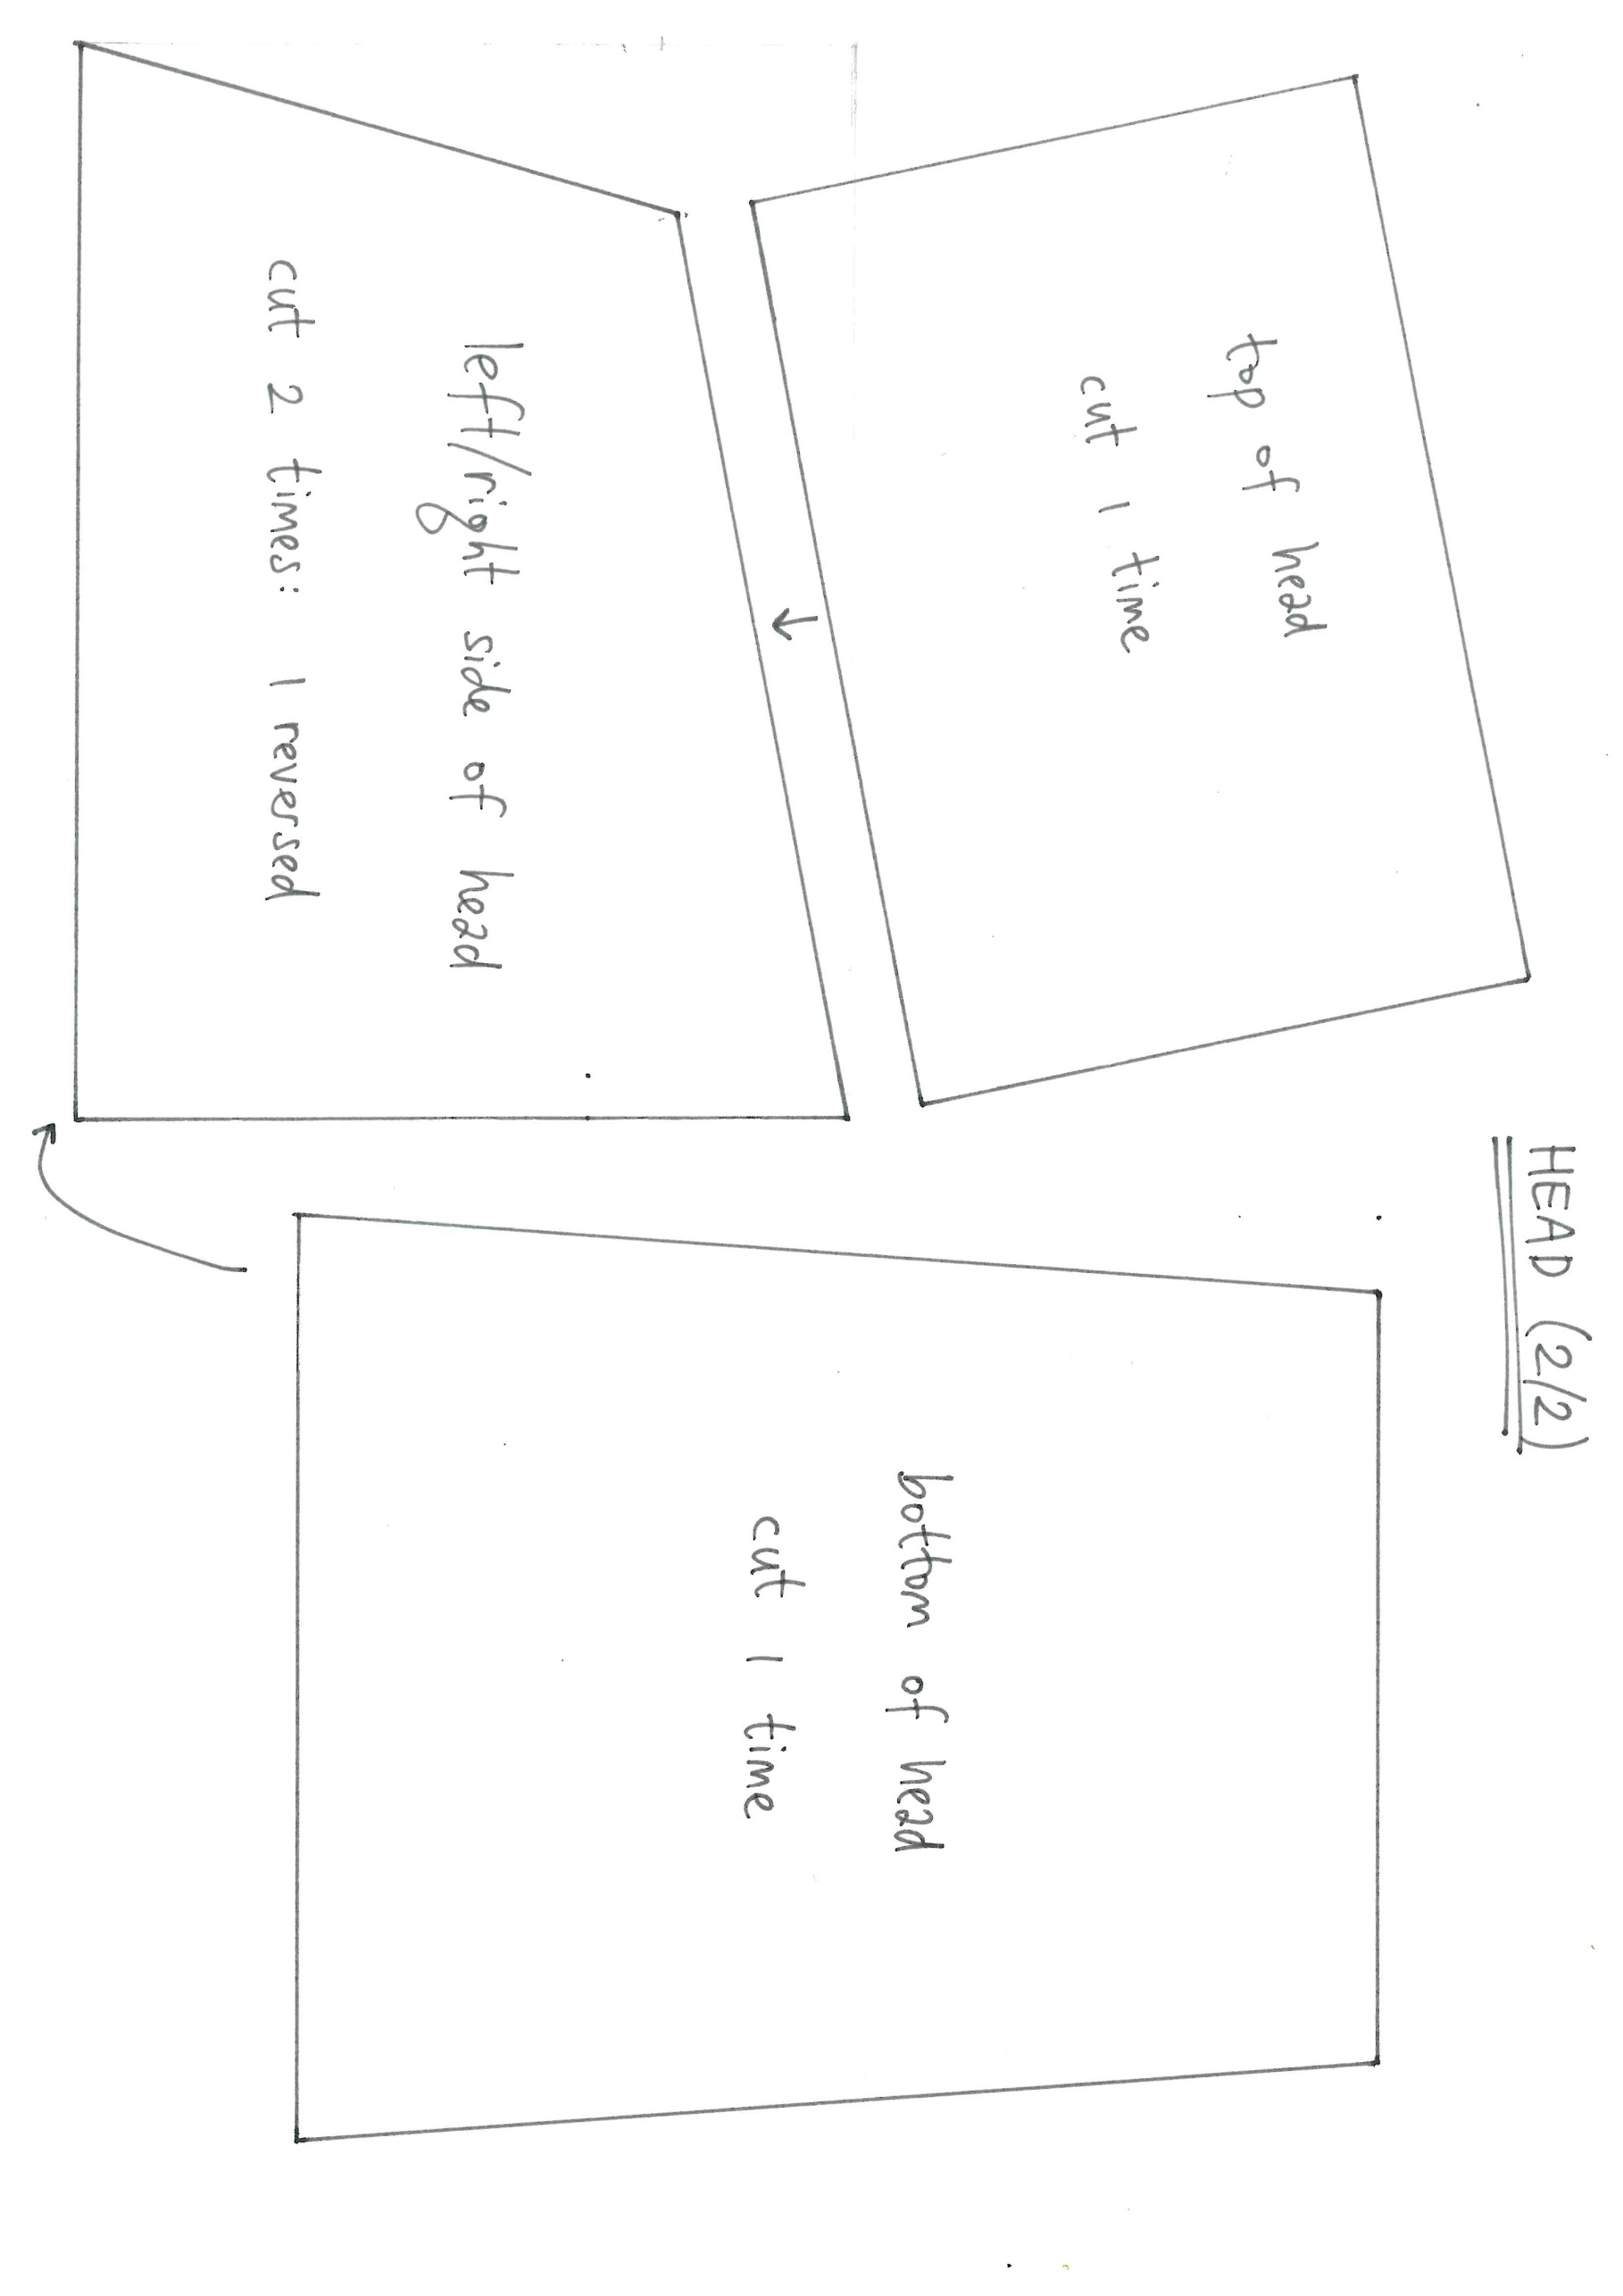 HEAD (2/2)
top of head
cut 1 time
left/right side of head
cut 2 times: 1 reversed
bottom of head
cut 1 time